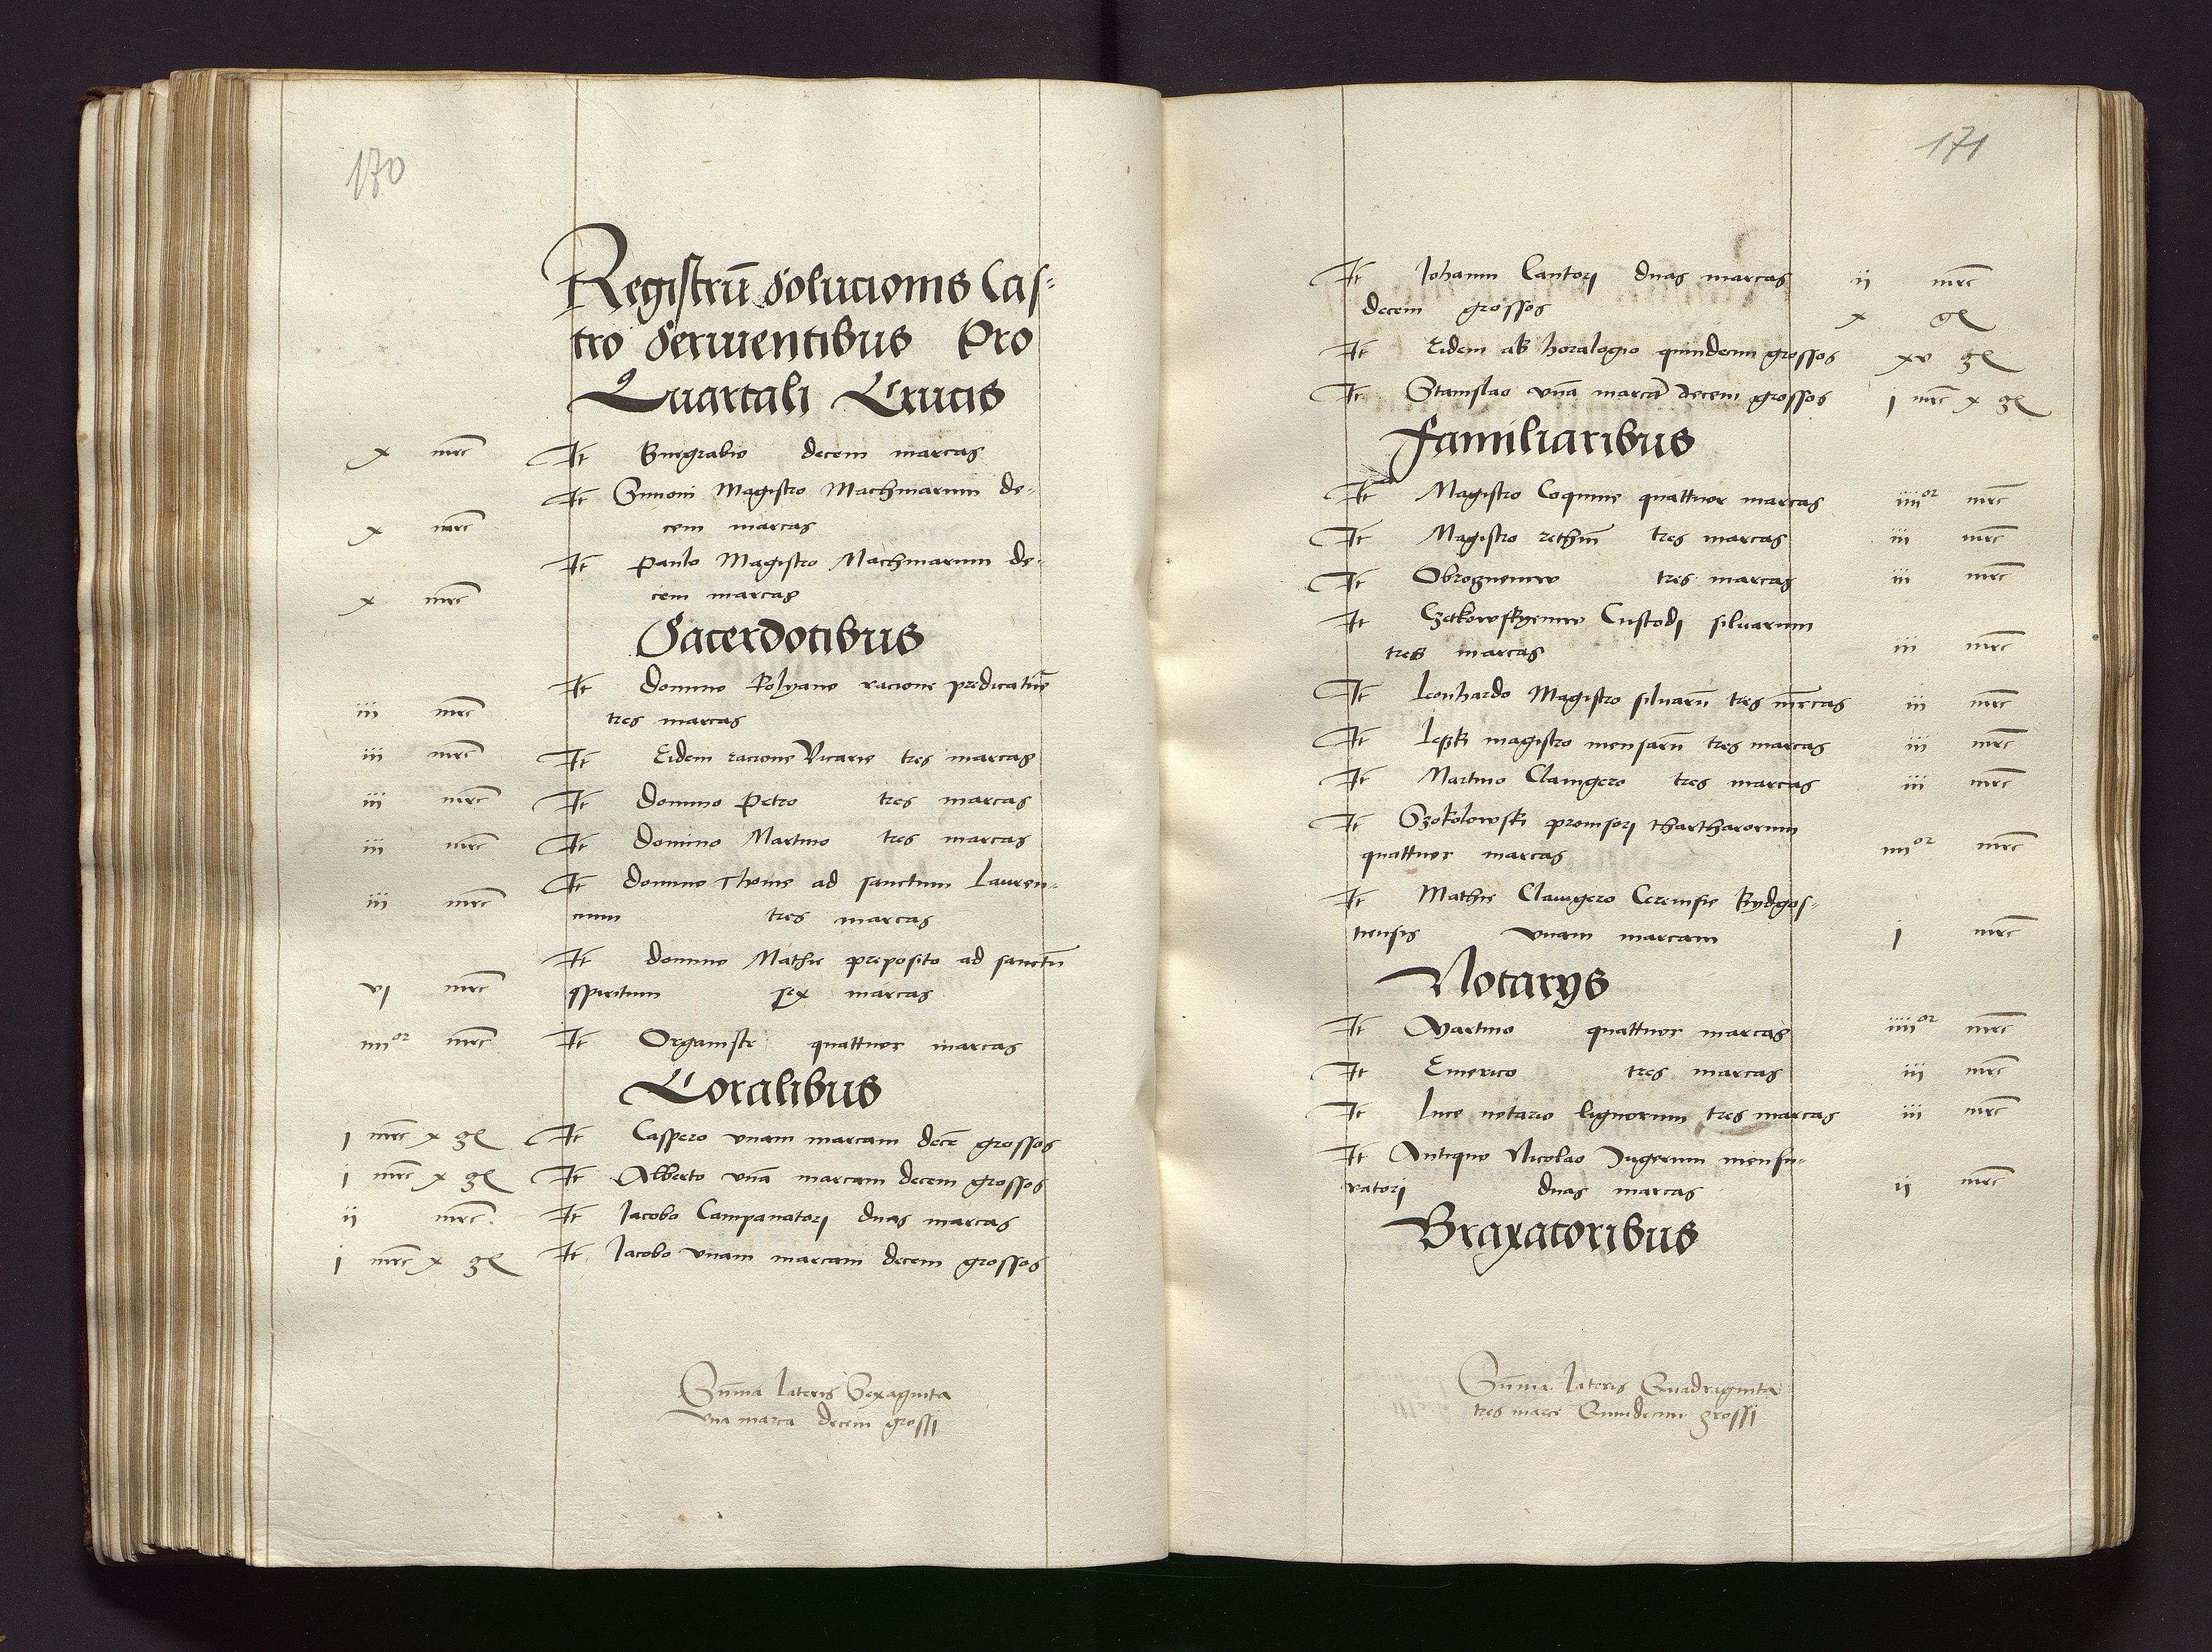 170
Registrū Solucionis Cas=
tro Seruientibus Pro
Quartali Crucis
x mrc It Burgrabio decem marcas
It Simoni Magistro Machinarum de=
x mrc cem marcas
It Paulo Magistro Machinarum de=
x mrc cem marcas
Sacerdotibus
It domino Kolyano racione predicature
iii mrc tres marcas
iii mrc It Eidem racione Vicarie tres marcas
iii mrc It Domino Petro tres marcas
iii mrc It Domino Martino tres marcas
It domino Thome ad sanctum Lauren=
iii mrc cium tres marcas
It domino Mathie preposito ad sanctū
vi mrc spiritum sex marcas
iiii or mrc It Organiste quattuor marcas
Coralibus
i mrc x gl It Caspero vnam marcam decē grossos
i mrc x gl It Alberto vnā marcam decem grossos
ii mrc It Jacobo Campanatori duas marcas
i mrc x gl It Jacobo vnam marcam decem grossos
Sūma lateris Sexaginta
vna marca decem grossi
171
It Johanni Cantori duas marcas ii mrc
decem grossos x gl
It Eidem ab horalogio quindecim grossos xv gl
It Stanislao vnā marcā decem grossos i mrc x gl
Familiaribus
It Magistro Coquine quattuor marcas iiii or mrc
It Magistro rethiū tres marcas iii mrc
It Obroznemw tres marcas iii mrc
It Czetkowskyemw Custodi siluarum
tres marcas iii mrc
It Leonhardo Magistro siluarū tres mrcas iii mrc
It Lepki magistro mensarū tres marcas iii mrc
It Martino Clauigero tres marcas iii mrc
It Szokolowski prouisori thartharorum
quattuor marcas iiii or mrc
It Mathie Clauigero Ceruisie Bydgos=
tiensis vnam marcam i mrc
Notarys
It Martino quattuor marcas iiii or mrc
It Emerico tres marcas iii mrc
It Luce notario lignorum tres marcas iii mrc
It Antiquo Nicolao Jugerum mensu=
ratori duas marcas ii mrc
Braxatoribus
Sūma lateris Quadraginta
tres marce Quindecim grossi